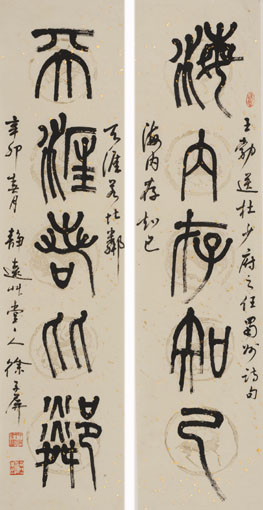 海内存知己
王勃送杜少府之任蜀州诗句
海内存知己
天涯若比鄰
天涯若比鄰
辛卯春月靜遠艸堂主人徐子屏